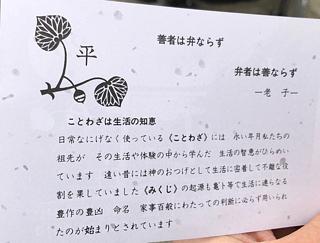 平
善者は弁ならず
弁者は善ならず
―老 子―
ことわざは生活の知恵
日常なにげなく使っている《ことわざ》には 永い年月私たちの
祖先が その生活や体験の中から学んだ 生活の智恵がひらめい
ています 遠い昔には神のおつげとして生活に密着して不離な役
割を果していました《みくじ》の起源も亀卜等で生活に連らなる
豊作の豊凶 命名 家事百般にわたっての判断に必らず用いられ
たのが始まりとされています